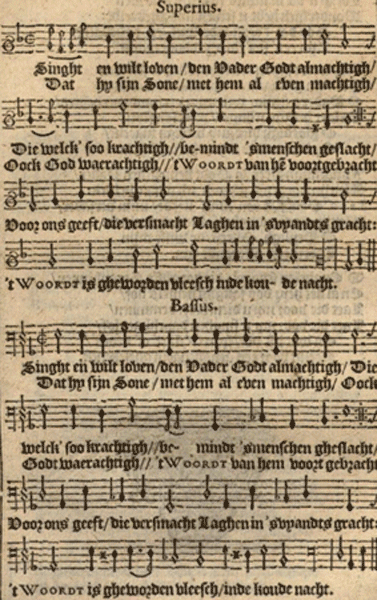 Superius.
Singht en wilt loven/den Vader Godt almachtigh/
Dat hy sijn Sone/met hem al even machtigh/
Die welck' soo krachtigh//be-mindt 'smenschen geslacht/
Oock God waerachtigh//'t WOORDT van hē voortgebracht
Voor ons geeft/die versmacht Laghen in 'svyandts gracht:
't WOORDT is gheworden vleesch inde kou- de nacht.
Bassus.
Singht eñ wilt loven/den Vader Godt almachtigh/ Die
Dat hy sijn Sone/met hem al even machtigh/ Oock
welck' soo krachtigh//be- mindt 'smenschen gheslacht/
Godt waerachtigh// 't WOORDT van hem voort gebracht
Voor ons geeft/die versmacht Laghen in 'svyandts gracht:
't WOORDT is gheworden vleesch/inde koude nacht.